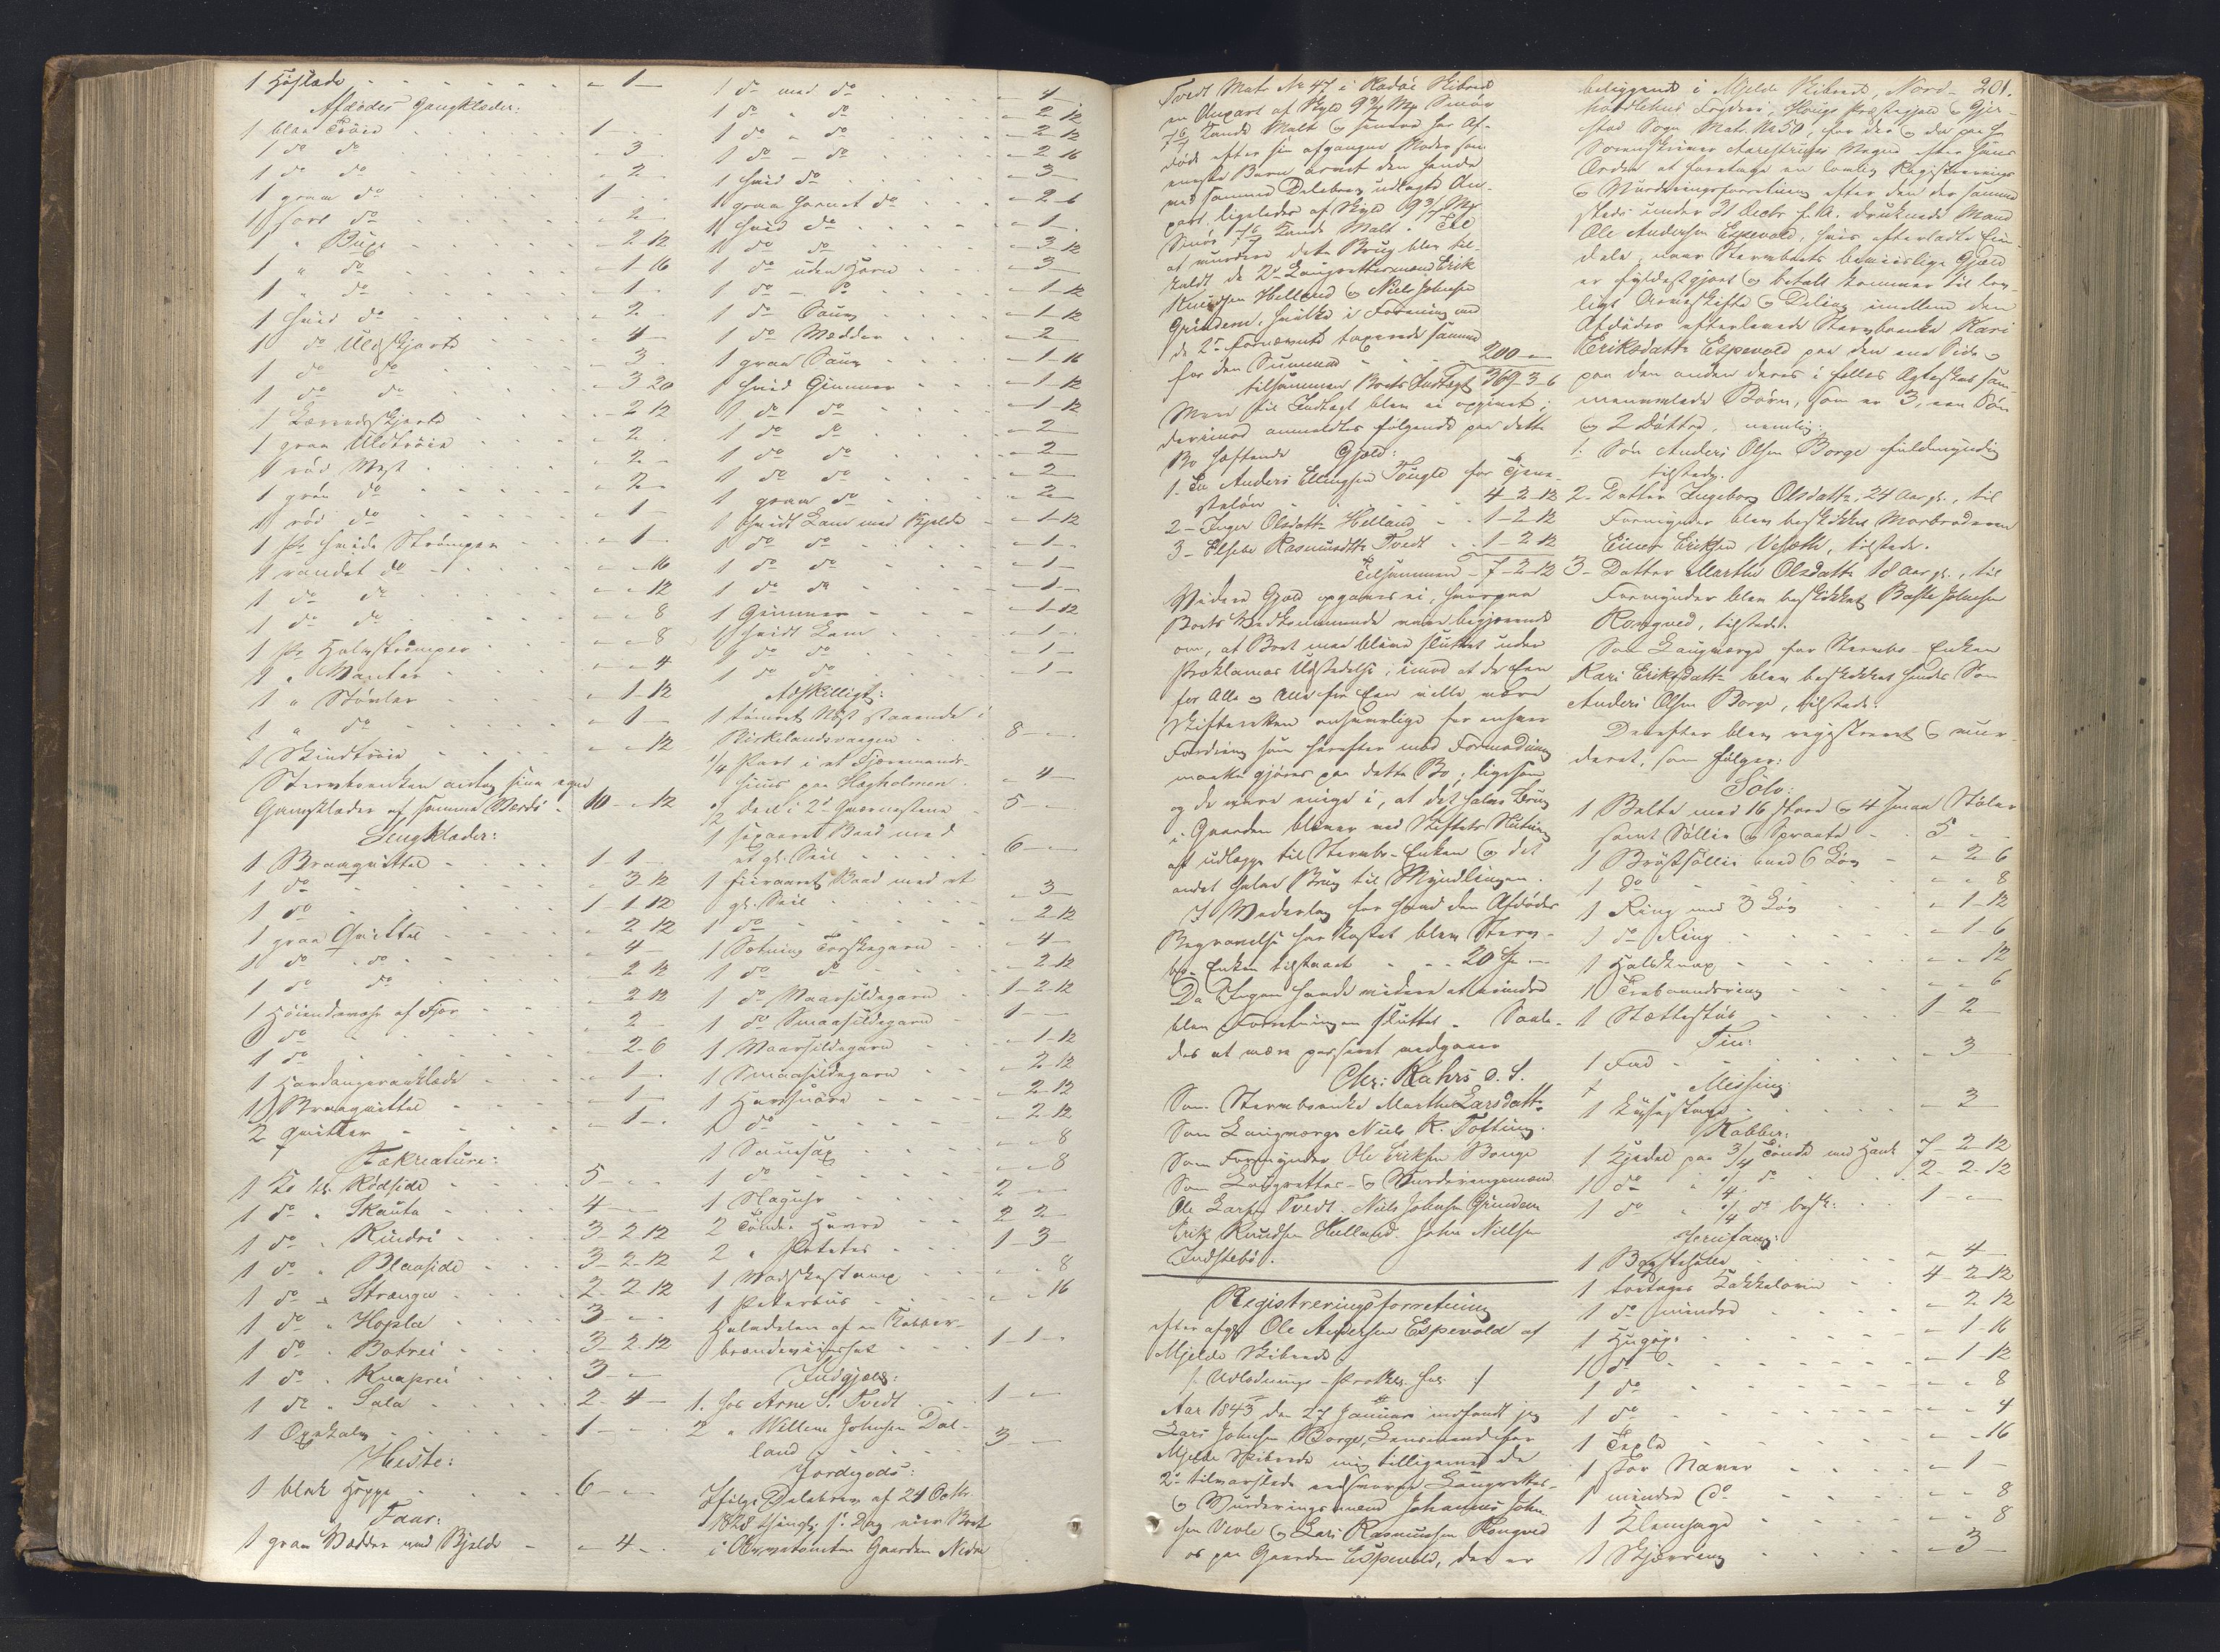 1 Høslæde - - - - " 1 -
Afdødes Gangklæder:
1 blaa Trøie - - - 1 - -
1 do do - - - " 3 -
1 do do - - - " 2 -
1 graa do - - - 1 - -
1 sort do - - - " 2 -
1 " Buxe - - - " 2 12
1 " do - - - " 1 16
1 " do - - - " 1 -
1 hvid do - - - " 2 -
1 do Uldskjorte - - " 4 -
1 do do - - - " 3
1 do do - - - " 3 20
1 Lærredsskjorte - - " 2 12
1 graa Uldtrøie - - " 2 -
1 rød Vest - - - " 2 -
1 grøn do - - - " 2 -
1 rød do - - - " 1 -
1 Pr hvide Strømper - - " 1 -
1 randet do - - - " " 16
1 do do - - - " " 12
1 do do - - - " " 8
1 Pr Halvstrømper - - " " 8
1 " Vanter - - - " " 4
1 " Støvler - - - " 1 12
1 " do - - - " 1 -
1 Skindtrøie - - - " " 12
Stervboenken antog sine egne
Gangklæder af samme Værdi - 10 " 12
Sengklæder:
1 Braaquittel - - - 1 1 -
1 do - - - " 3 12
1 do - - - 1 1 12
1 graa Quittel - - - " 2 12
1 do do - - - " 4 -
1 do do - - - " 2 12
1 Høiendevahr af Fjær - - " 2 12
1 do - - - " 2 -
1 do - - - " 2 6
1 Hardangeraaklæde - - " 1 -
1 Braaquittel - - - " 1 -
2 quitler - - - " 1 -
Fækreature:
1 Ko k. Rødside - - 5 - -
1 do " Skauta - - 4 - -
1 do " Rindri - - 3 2 12
1 do " Blaaside - - 3 2 12
1 do " Strænga - - 2 2 12
1 do " Hopla - - 3 - -
1 do " Botrei - - 3 2 12
1 do " Knaprei - - 3 - -
1 do " Sala - - 2 4 -
1 Oxekalv - - 1 - -
Heste:
1 blak Hoppe - - 6 - -
Faar:
1 graa Vædder med Bjelde - " 4 -
1 do med do - - " 4 -
1 do " do - - " 2 12
1 do " do - - " 2 12
1 do - do - - " 2 16
1 hvid do - - " 3 -
1 graa hornet do - - " 2 6
1 hvid do - - " 1 -
1 do do - - " 3 12
1 do uden Horn - - " 3 -
1 do - do - - " 1 12
1 do Sau - - " 1 12
1 do Vædder - - " 2 -
1 graa Sau - - " 1 16
1 hvid Gimmer - - " 1 12
1 do do - - " 1 12
1 do do - - " 2
1 do do - - " 2 -
1 do do - - " 2
1 graa do - - " 2 -
1 hvidt Lam med Bjelde - " 1 12
1 do do - - " 1 -
1 do do - - " 1 -
1 do do - - " 1 -
1 Gimmer - - " 1 12
1 hvidt Lam - - " 1 -
1 do do - - " 1 -
1 do do - - " 1 -
Adskilligt:
1 tømret Nøst staaende i
Birkelandsvaagen - - 8 - -
1/4 Part i et Fjæremands-
huus paa Hægholmen - " 4 -
1/2 deel i 2de Qværnestene - 5 - -
1 sexaaret Baad med
et gl. Seil - - 6 - -
1 fiiraaret Baad med et
gl. Seil - - " 3 -
1 do - - " 2 12
1 Sætning Torskegarn - - " 4 -
1 do do - - " 2 12
1 do Vaarsildegarn - 1 2 12
1 do Smaasildegarn - 1 - -
1 Vaarsildegarn - - " 1 12
1 Smaasildegarn - - " 2 12
1 Harsnøre - - " 2 12
1 do - - " 2 12
1 Sauesax - - " " 8
1 do - - " " 8
1 Slaguhr - - 2 - -
2 Tønder Havre - - 2 2 -
2 " Poteter - - 1 3 -
1 Vadskestamp - - " " 8
1 Peterbus - - " " 16
Halvdelen af en Kobber-
brændeviinshat - - 1 1 -
Indgjæld:
1. hos Arne S. Tvedt - - 1 - -
2 " Willem Johnsen Dal-
land - - 3 - -
Jordegods:
Ifølge Delebrev af 24 Octbr.
1828 thinglst s. Dag eier Boet
i Gaarden Nedre
Tvedt Matr No 47 i Radøe Skibrede
en Anpart af Skyld 9 3/7 Mp Smør
7 6/7 Kande Malt og senere har Af-
døde efter sin afgangne Moder som
eneste Barn arvet den hende
ved samme Delebrev udlagte An-
part, ligeledes af Skyld 9 3/7 Mp
Smør 7 6/7 Kande Malt. Til
at vurdere dette Brug blev til-
kaldt de 2de Laugrettesmænd Erik
Knudsen Helland og Niels Johnsen
Grindem, hvilke i Forening med
de 2de fornævnte taxerede samme
for den Summa - - 200 - -
tilsammen Boets Indtægt 369 3 6
Mere til Indtægt blev ei opgivet;
derimod anmeldtes følgende paa dette
Bo heftende Gjæld:
1. Til Anders Ellingsen Tougle for Tjene-
steløn - - 4 2 12
2 - Inger Olsdatter Helland - - 1 2 12
3 - Elsebe Rasmusdtr Tvedt - 1 2 12
Tilsammen - 7 2 12
Videre Gjæld opgaves ei, hvorpaa
Boets Vedkommende vare begjærende
om, at Boet maa blive sluttet uden
Proklamas Udstedelse, imod at de Een
for Alle og Alle for Een ville være
Skifteretten ansvarlige for enhver
Fordring som herefter mod Formodning
maatte gjøres paa dette Bo; ligesom
og de vare enige i, at det halve Brug
i Gaarden bliver ved Skiftets Slutning
at udlægge til Stervbo-Enken og det
andet halve Brug til Myndlingen.
I Vederlag for hvad den Afdødes
Begravelse har kostet blev Sterv-
bo-Enken tilstaaet - - 20 Sp -
Da Ingen havde videre at erindre
blev Forretningen sluttet. Saale-
des at være passeret vedgaaer
Chr: Kahrs c. S.
Som Stervboenke Marthe Larsdatter
Som Laugværge Niels K. Tofting.
Som Formynder Ole Eriksen Bouge
Som Laugrettes- og Vurderingsmænd
Ole Larsen Tvedt. Niels Johnsen Grindem
Erik Knudsen Helland. John Nielsen
Indstebø.
Registreringsforretning
efter afgl. Ole Andersen Espevold af
Mjelde Skibrede
/: Udlodnings-Protkl. fol: :/
Aar 1843 den 27 Januar indfandt jeg
Lars Johnsen Borge, Lensmand for
Mjelde Skibrede mig tilligemed de
2de tilvarslede eedsvorne Laugrettes-
og Vurderingsmænd Johannes John-
sen Veole og Lars Rasmussen Rongved
os paa Gaarden Espevold, der er
201.
beliggende i Mjelde Skibrede, Nord-
hordlehns Fogderi, Hougs Præstegjeld og Gjer-
stad Sogn Matr. No 50, for der og da paa Hr
Sorenskriver Aarestrups Vegne efter hans
Ordre at foretage en lovlig Registrerings
og Vurderingsforretning efter den der samme
steds under 31 Decbr f. A. druknede Mand
Ole Andersen Espevold, hvis efterladte Eien-
dele, naar Stervboets beviislige Gjæld
er fyldestgjort og betalt kommer til lov-
ligt Arveskifte og Deling imellem den
Afdødes efterlevende Stervboenke Kari
Eriksdatter Espevold paa den ene Side og
paa den anden deres i fælles Ægteskab sam-
menavlede Børn, som er 3, een Søn
og 2 Døttre, nemlig:
1. Søn Anders Olsen Borge fuldmyndig
tilstede.
2- Datter Ingeborg Olsdatter, 24 Aar gl., til
Formynder blev beskikket Morbroderen
Einer Eriksen Veseth, tilstede.
3- Datter Marthe Olsdatter 18 Aar gl., til
Formynder blev beskikket Baste Johnsen
Rongved, tilstede.
Som Laugværge for Stervbo-Enken
Kari Eriksdatter blev beskikket hendes Søn
Anders Olsen Borge, tilstede.
Derefter blev registreret og vur-
deret, som følger:
Sølv:
1 Belte med 16 store og 4 smaa Støler
samt Søllie og Spraate - - 5 - -
1 Brystsøllie med 6 Løv - " 2 6
1 do - - " " 8
1 Ring med 3 Løv - " 1 12
1 do Ring - - " 1 6
1 Halsknap - - " " 12
1 Trebaandsring - - " " 6
1 Støttestøb - - 1 2 -
Tin:
1 Fad - - " 3
Messing:
1 Lysestage - - " 3
Kobber:
1 Kjedel paa 3/4 Tønde med Hank 7 2 12
1 do " 1/4 do - - 2 2 12
1 do " 1/4 do besk: - 1 - -
Jernfang:
1 - - " 4 -
1 toetages Kakkelovn - 4 2 12
1 do mindre - - " 2 12
1 Hugøxe - - " 1 16
1 do - - " 1 12
1 do - - " " 8
1 do - - " " 4
1 Texla - - " " 16
1 stor Naver - - " 1 -
1 mindre do - - " " 8
1 Klemsage - - " " 8
1 Skjæring - - " 3 -